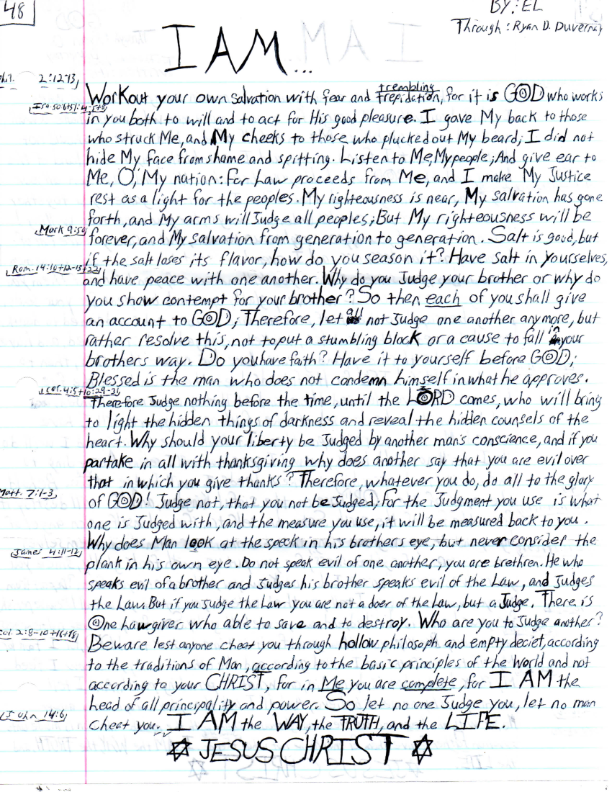 48
BY: EL
Through: Ryan D. Duverney
I AM...
2:12-13,
WorkOut your own salvation with fear and trembling trepidation, for it is GOD who works
in you both to will and to act for His good pleasure. I gave My back to those
who struck Me, and My cheeks to those who plucked out My beard; I did not
hide My face from shame and spitting. Listen to Me, My people; And give ear to
Me, O, My nation: For Law proceeds from Me, and I make My Justice
rest as a light for the peoples. My righteousness is near, My salvation has gone
forth, and My arms will Judge all peoples; But My righteousness will be
Mark 9:50
forever, and My salvation from generation to generation. Salt is good, but
if the salt loses its flavor, how do you season it? Have salt in yourselves,
Rom. 14:10+12-13+22
and have peace with one another. Why do you Judge your brother or why do
you show contempt for your brother? So then each of you shall give
an account to GOD; Therefore, let all not Judge one another anymore, but
rather resolve this, not to put a stumbling block or a cause to fall in your
brothers way. Do you have faith? Have it to yourself before GOD;
Blessed is the man who does not condemn himself in what he approves.
1 Cor. 4:5+10:29-31
Therefore Judge nothing before the time, until the LORD comes, who will bring
to light the hidden things of darkness and reveal the hidden counsels of the
heart. Why should your liberty be Judged by another man's conscience, and if you
partake in all with thanksgiving why does another say that you are evil over
that in which you give thanks? Therefore, whatever you do, do all to the glory
Matt. 7:1-3,
of GOD! Judge not, that you not be Judged; for the Judgment you use is what
one is Judged with, and the measure you use, it will be measured back to you.
Why does Man look at the speck in his brothers eye, but never consider the
James 4:11-12,
plank in his own eye. Do not speak evil of one another, you are brethren. He who
speaks evil of a brother and Judges his brother speaks evil of the Law, and Judges
the Law. But if you Judge the Law you are not a doer of the Law, but a Judge. There is
One Lawgiver who able to save and to destroy. Who are you to Judge another?
Col 2:8-10+16+18,
Beware lest anyone cheat you through hollow philosoph and empty deciet, according
to the traditions of Man, according to the basic principles of the World and not
according to your CHRIST, for in Me you are complete, for I AM the
head of all principality and power. So let no one Judge you, let no man
John 14:6,
cheat you. I AM the WAY, the TRUTH, and the LIFE.
✡ JESUS CHRIST ✡